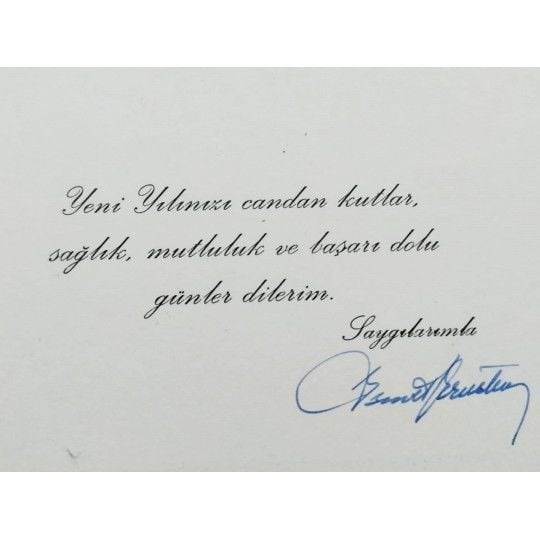 Yeni Yılınızı candan kutlar,
sağlık, mutluluk ve başarı dolu
günler dilerim.
Saygılarımla